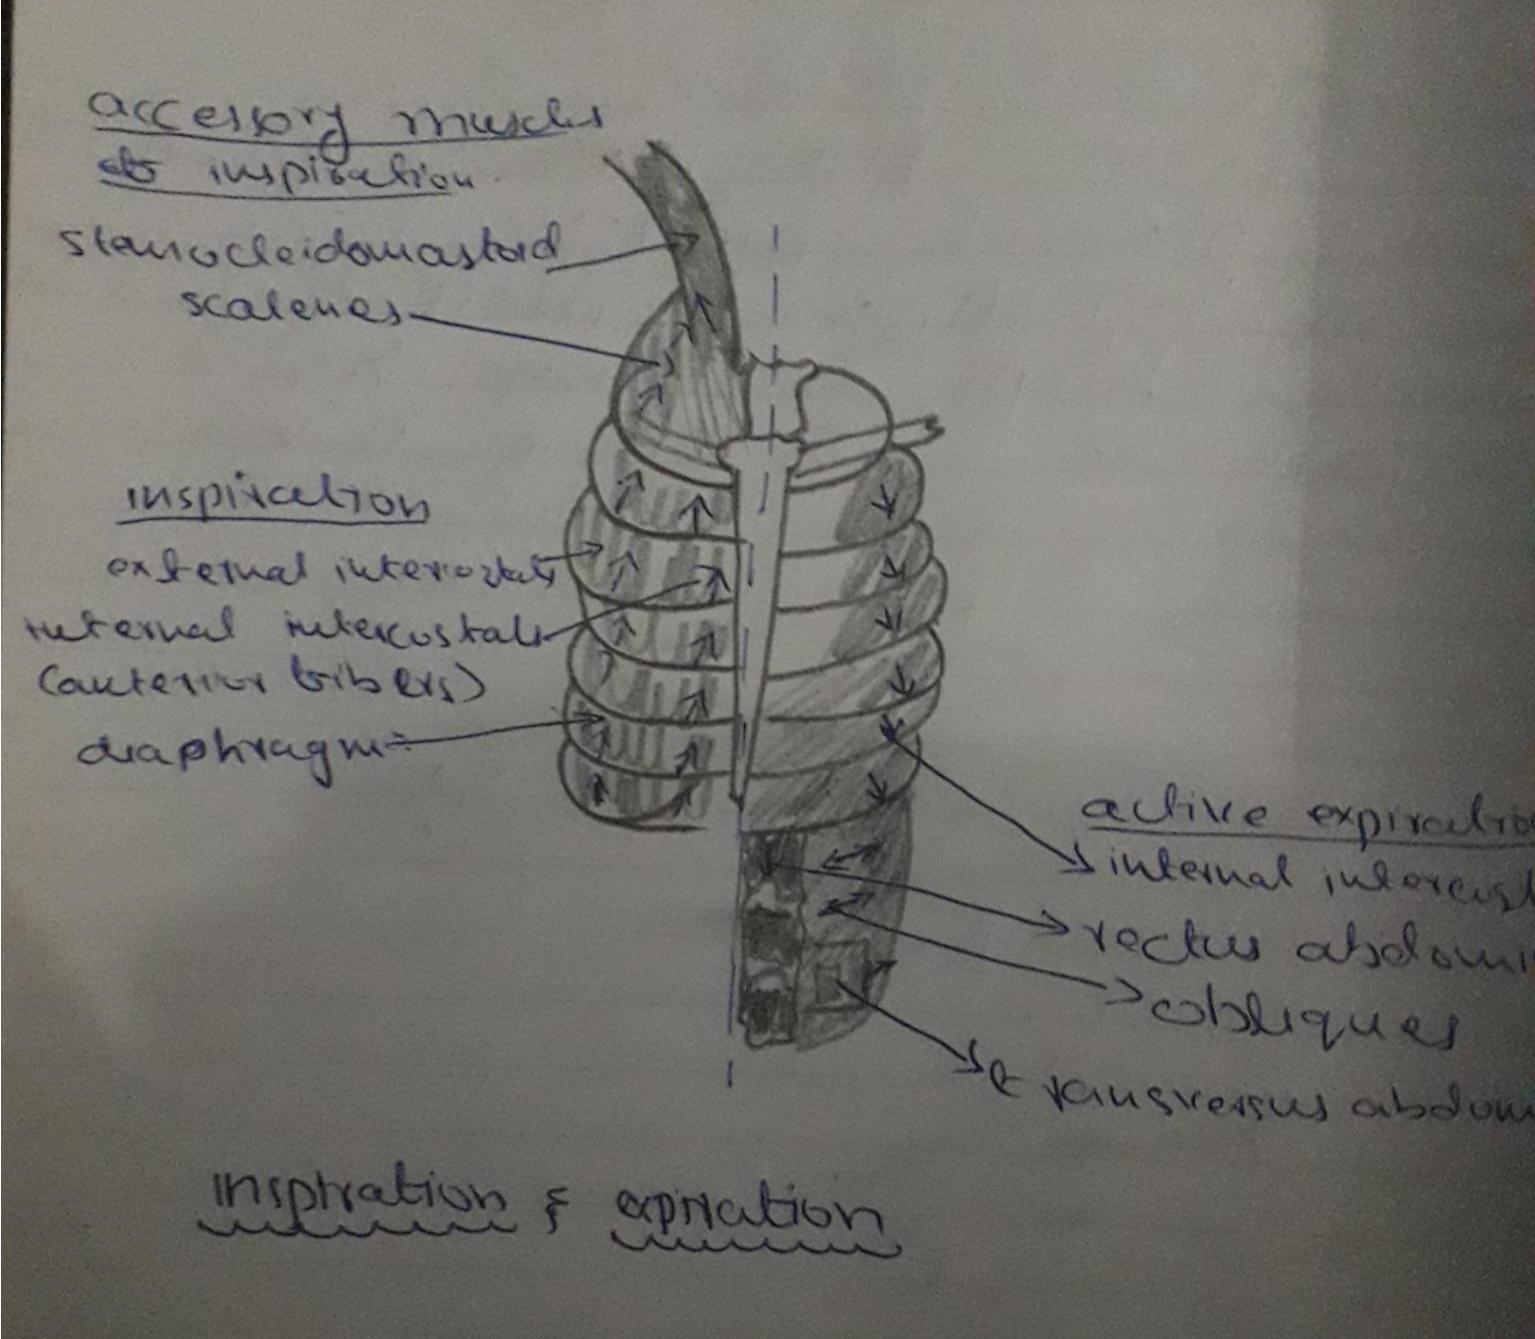 accessory muscles
of inspiration
sternocleidomastoid
scalenes
inspiration
external intercostals
internal intercostals
(anterior fibers)
diaphragm
active expiratio
internal intercost
rectus abdomi
obliques
transversus abdom
inspiration & expriation